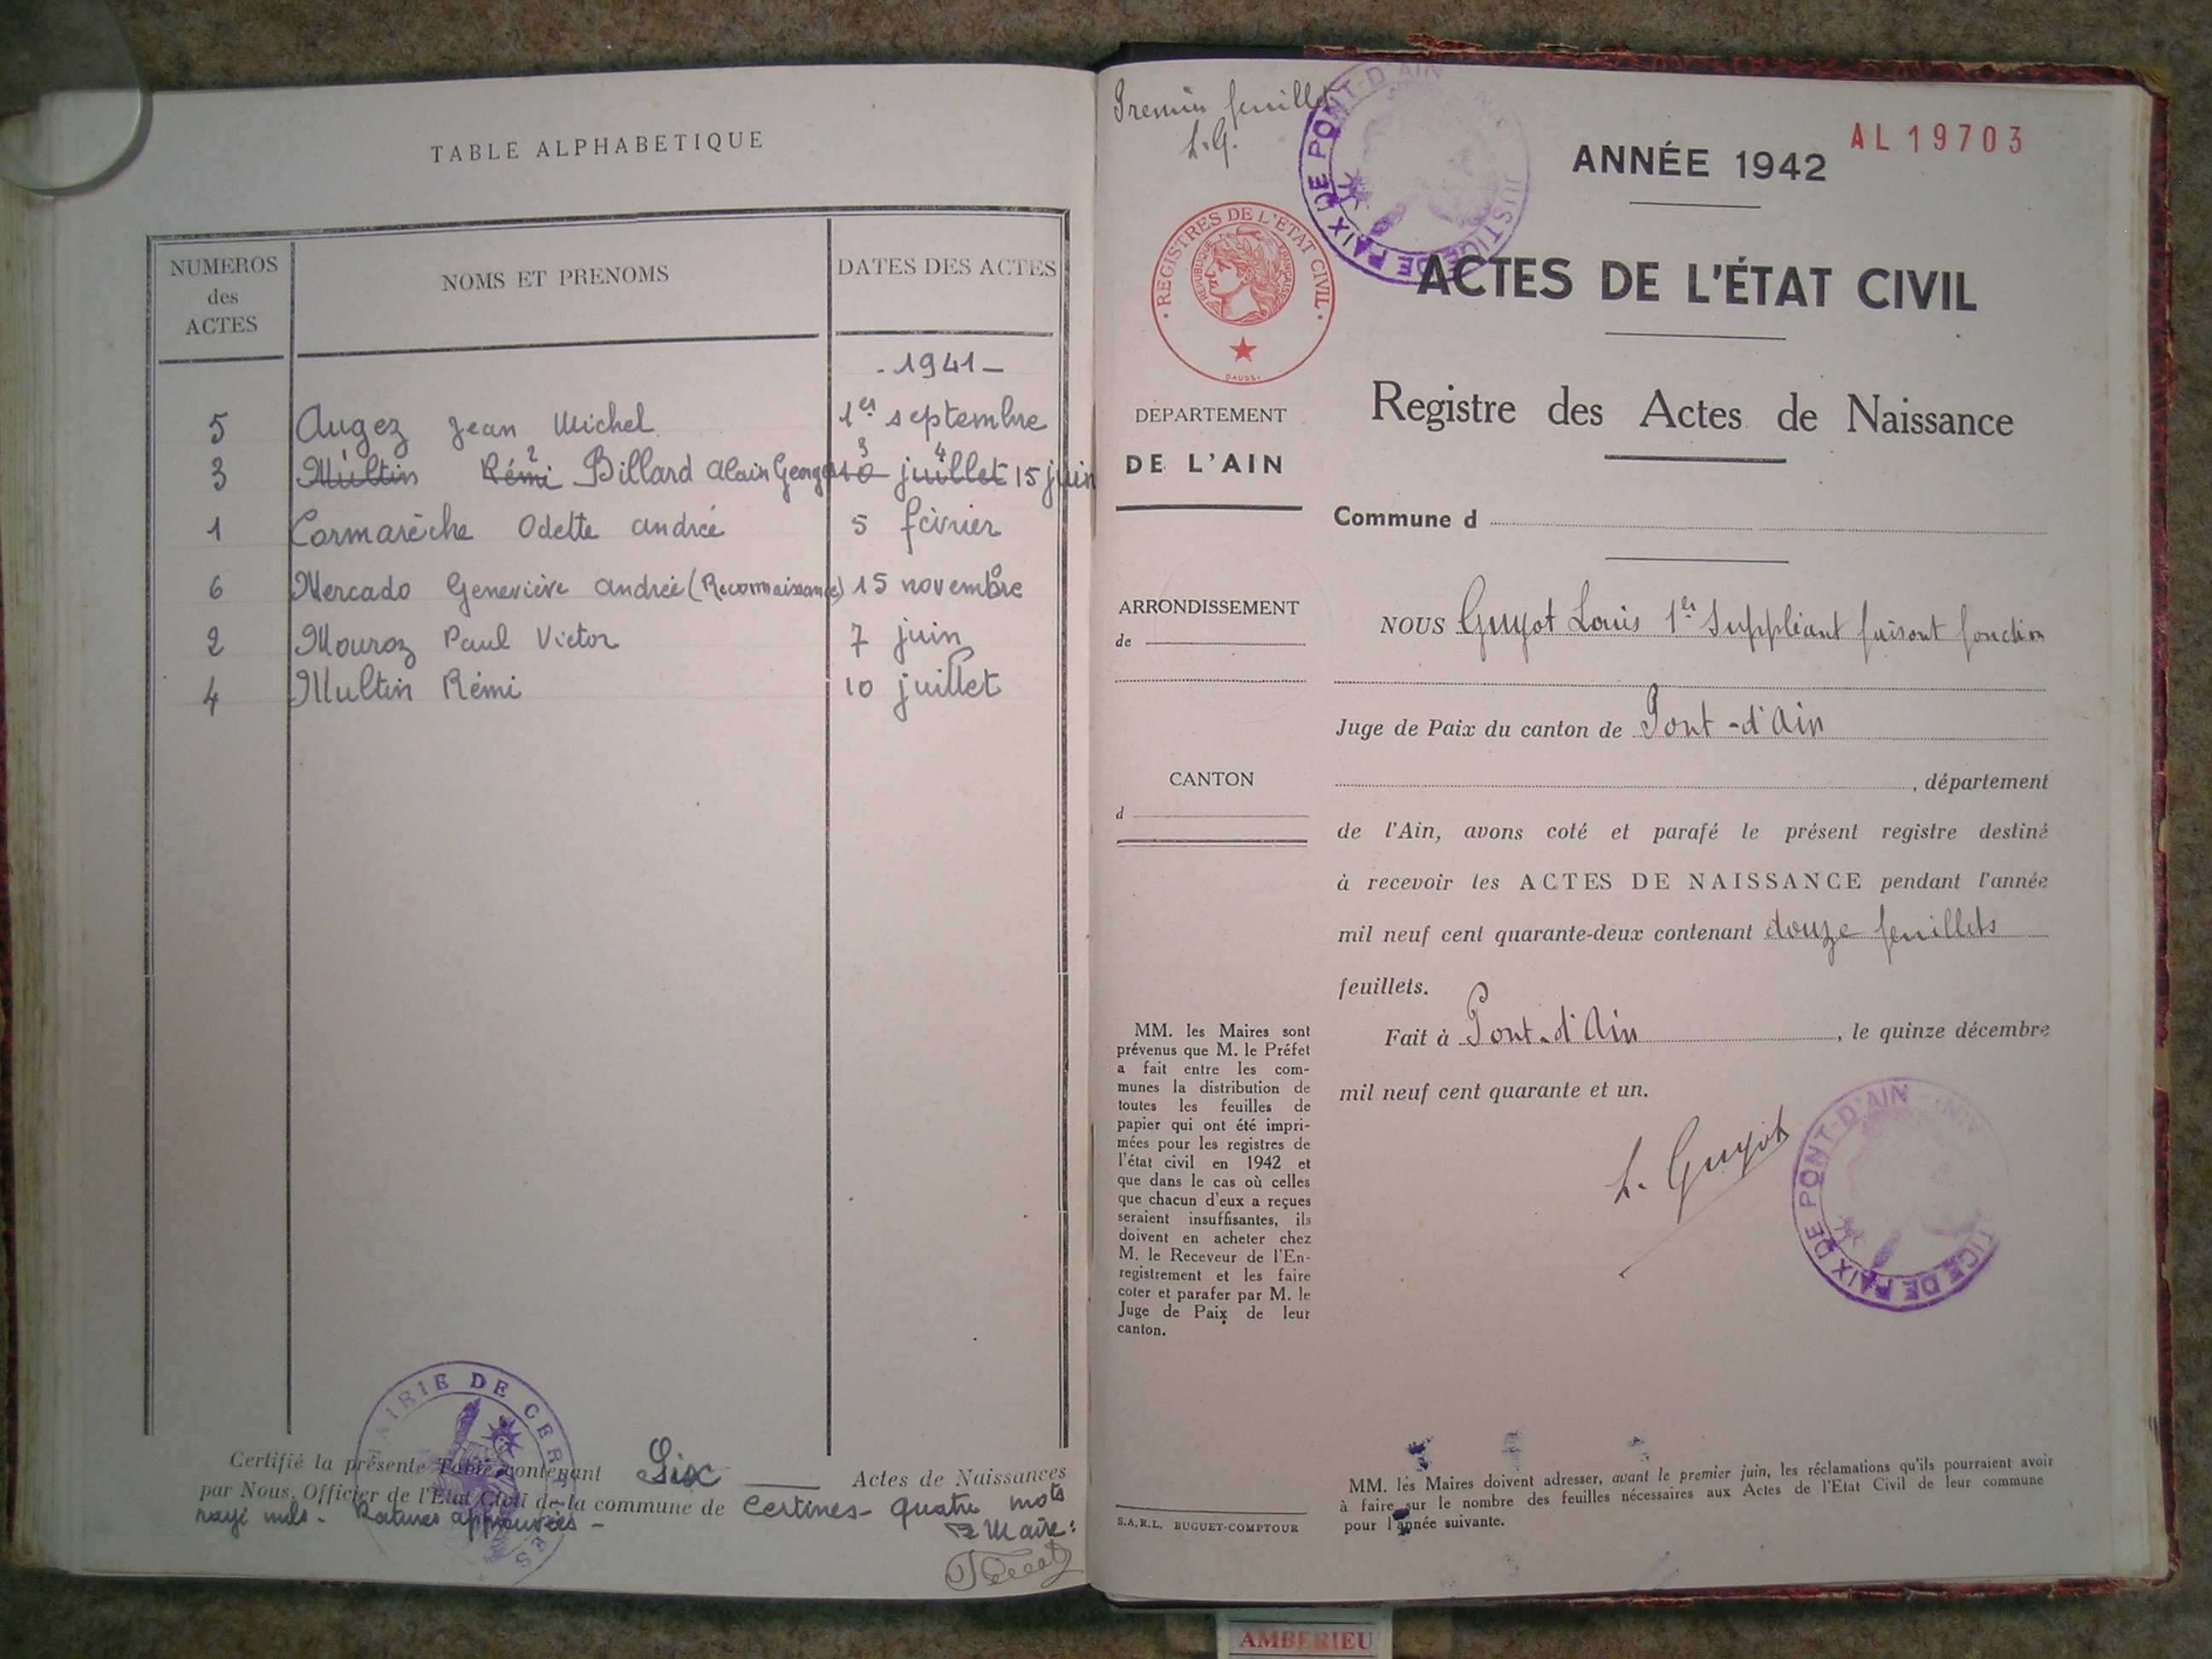 TABLE ALPHABETIQUE
NUMEROS des ACTES
NOMS ET PRENOMS
DATES DES ACTES
- 1941 -
5 Augez Jean Michel 1er septembre
3 Multin Rémi Billard Alain Georges 10 juillet 15 juin
1 Cormarèche Odette Andrée 5 février
6 Mercado Geneviève Andrée (Reconnaissance) 15 novembre
2 Mouroz Paul Victor 7 juin
4 Multin Rémi 10 juillet
MAIRIE DE CERTINES
Certifié la présente Table contenant Six Actes de Naissances
par Nous, Officier de l'Etat Civil de la commune de Certines - Quatre mots
rayés nuls - Ratures approuvées -
Le Maire :
Premier feuillet
L.G.
JUSTICE DE PAIX DE PONT-D'AIN
ANNÉE 1942
AL 19703
REGISTRES DE L'ETAT CIVIL
REPUBLIQUE FRANÇAISE
DAUSSI
ACTES DE L'ÉTAT CIVIL
Registre des Actes de Naissance
DEPARTEMENT
DE L'AIN
Commune d
ARRONDISSEMENT
de
CANTON
d
NOUS Guyot Louis 1er Suppléant faisant fonction
Juge de Paix du canton de Pont-d'Ain
, département
de l'Ain, avons coté et parafé le présent registre destiné
à recevoir les ACTES DE NAISSANCE pendant l'année
mil neuf cent quarante-deux contenant douze feuillets
feuillets.
Fait à Pont-d'Ain, le quinze décembre
mil neuf cent quarante et un.
L. Guyot
JUSTICE DE PAIX DE PONT-D'AIN
MM. les Maires sont
prévenus que M. le Préfet
a fait entre les com-
munes la distribution de
toutes les feuilles de
papier qui ont été impri-
mées pour les registres de
l'état civil en 1942 et
que dans le cas où celles
que chacun d'eux a reçues
seraient insuffisantes, ils
doivent en acheter chez
M. le Receveur de l'En-
registrement et les faire
coter et parafer par M. le
Juge de Paix de leur
canton.
S.A.R.L. BUGUET-COMPTOUR
MM. les Maires doivent adresser, avant le premier juin, les réclamations qu'ils pourraient avoir
à faire sur le nombre des feuilles nécessaires aux Actes de l'Etat Civil de leur commune
pour l'année suivante.
AMBERIEU